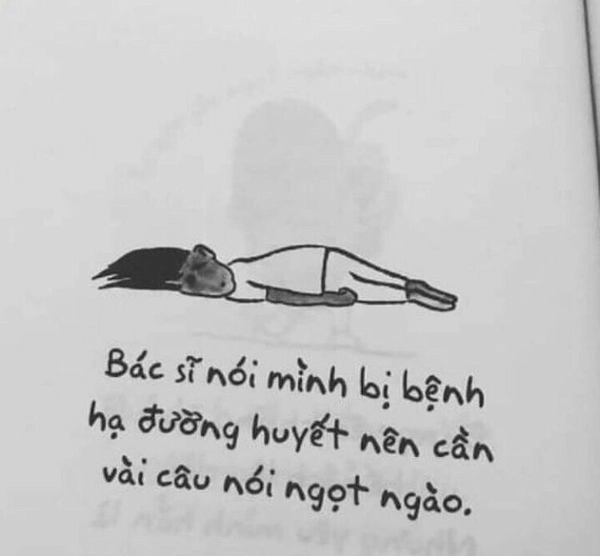 Bác sĩ nói mình bị bệnh
hạ đường huyết nên cần
vài câu nói ngọt ngào.